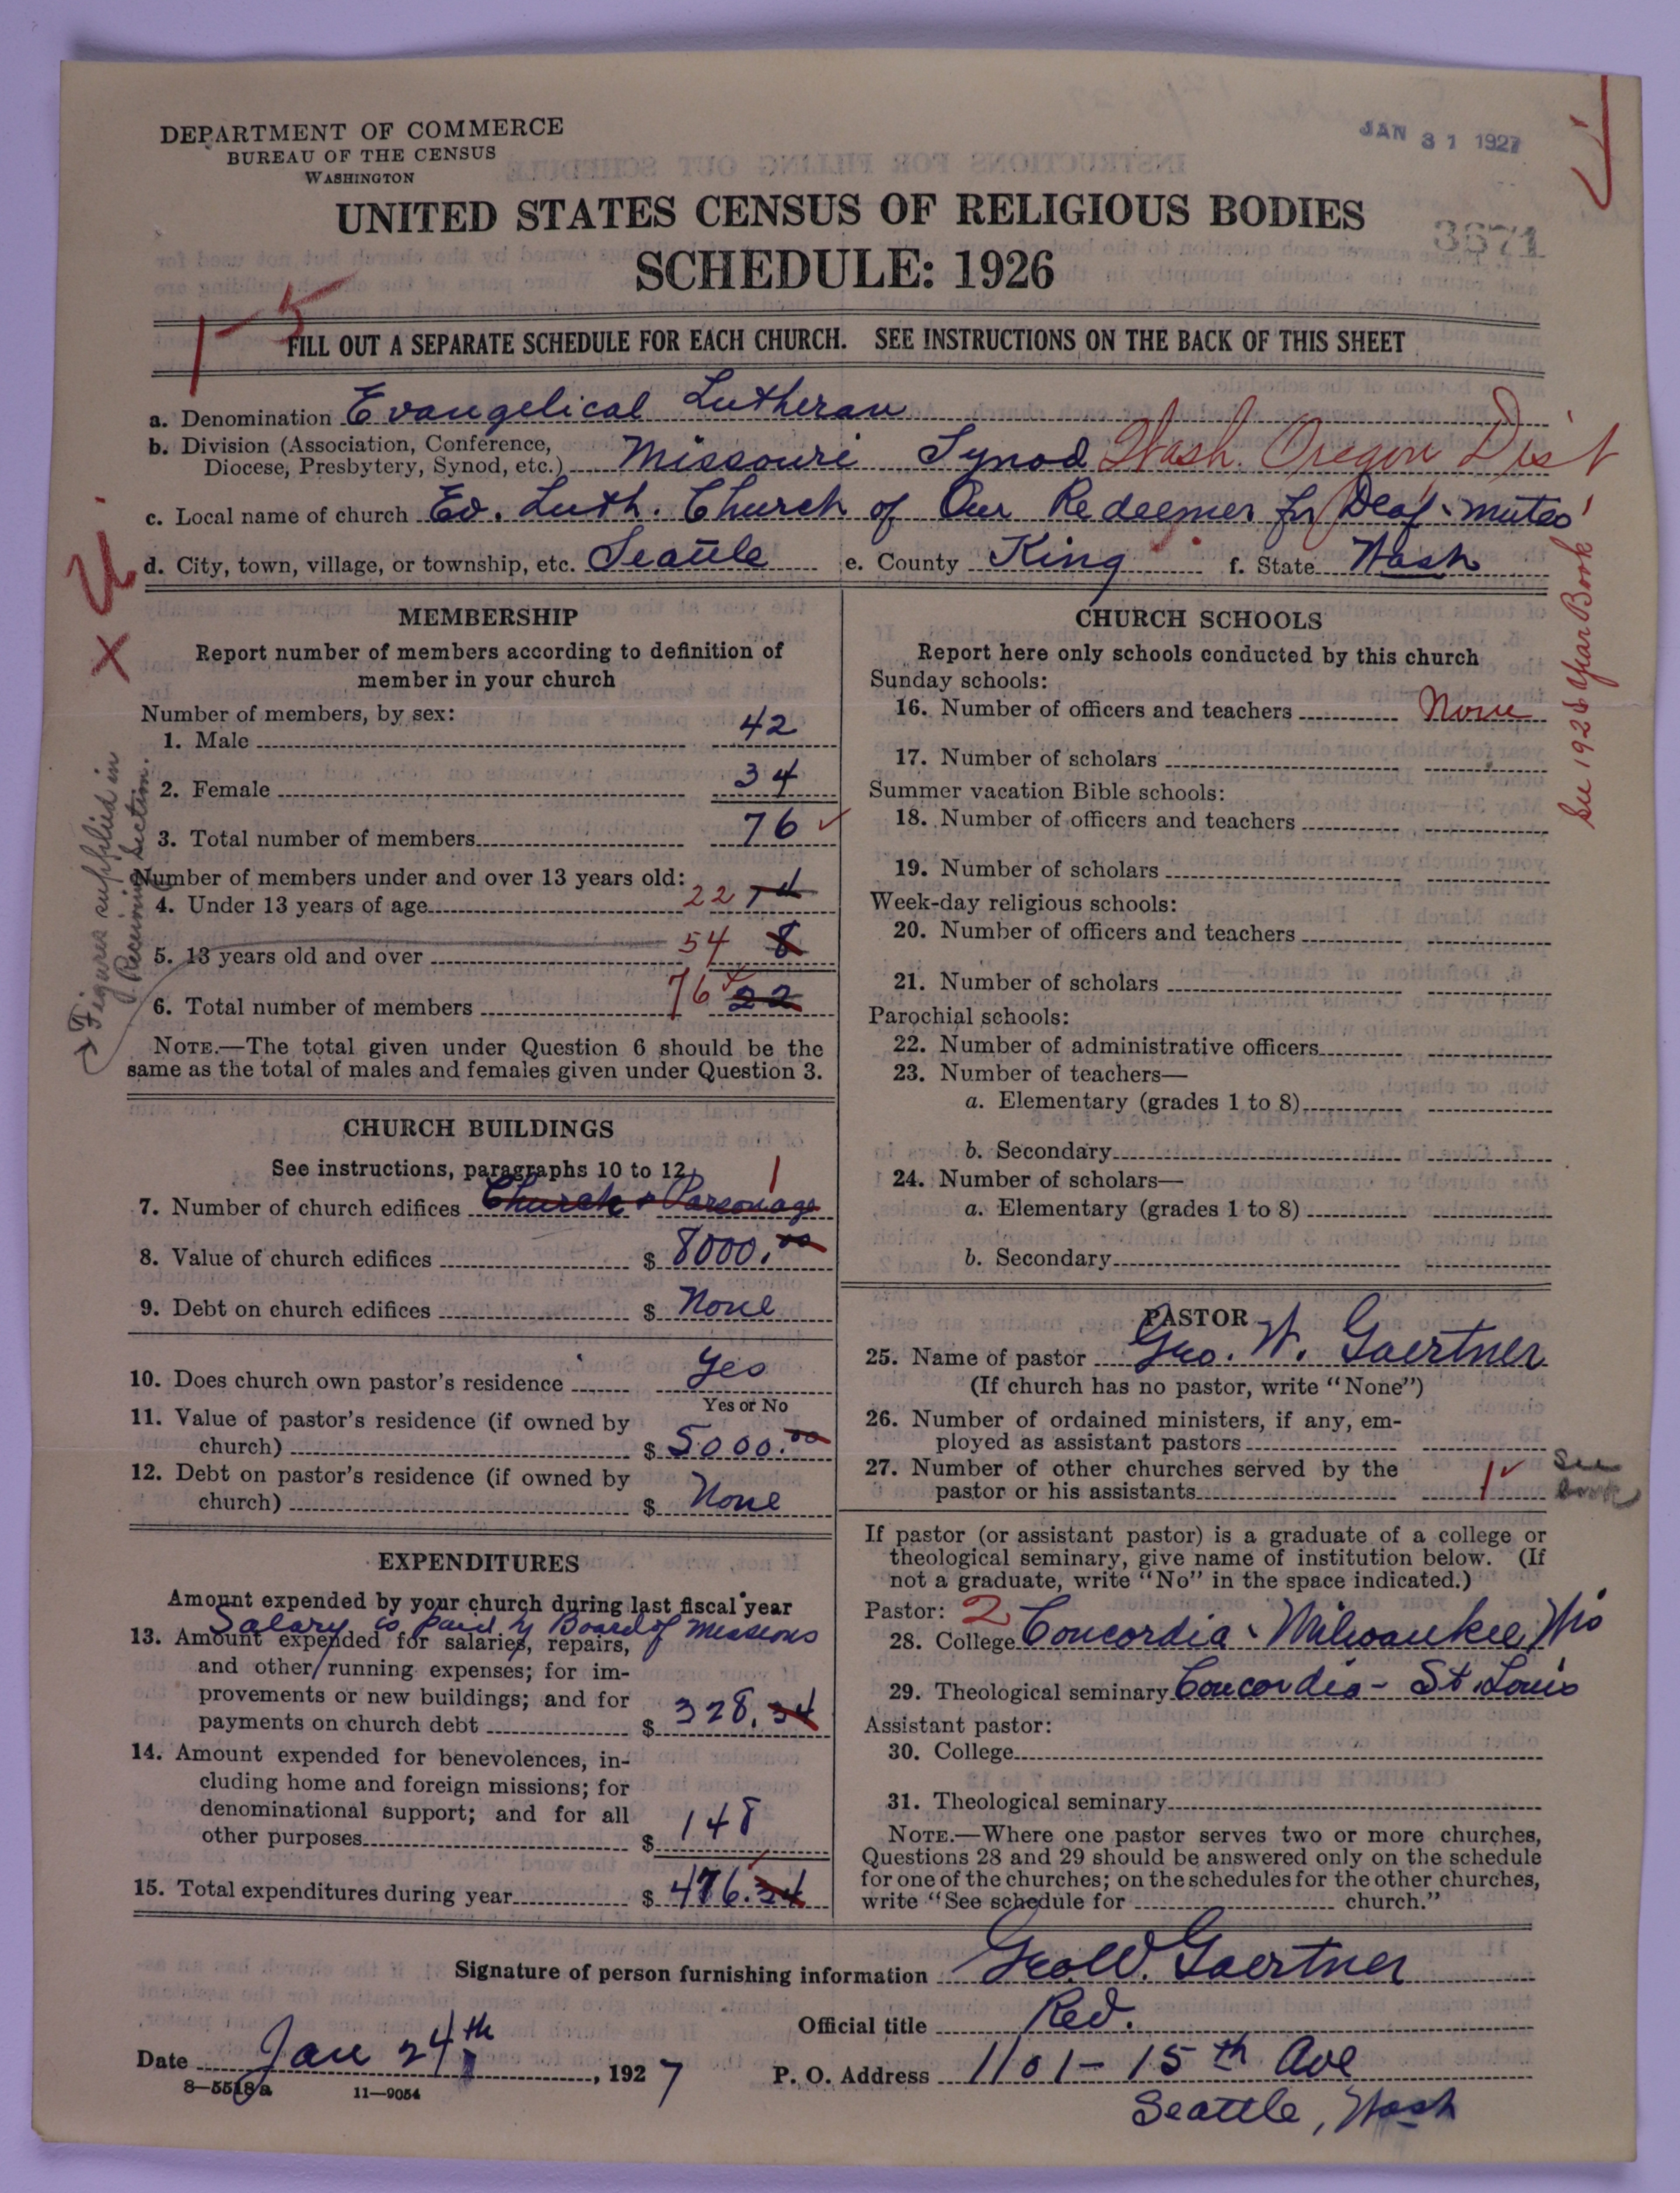 DEPARTMENT OF COMMERCE
BUREAU OF THE CENSUS
WASHINGTON
JAN 31 1927
UNITED STATES CENSUS OF RELIGIOUS BODIES
3671
SCHEDULE: 1926
1-5
FILL OUT A SEPARATE SCHEDULE FOR EACH CHURCH. SEE INSTRUCTIONS ON THE BACK OF THIS SHEET
a. Denomination Evangelical Lutheran
b. Division (Association, Conference,
Diocese, Presbytery, Synod, etc.) Missouri Synod Wash. Oregon Dist
c. Local name of church Ev. Luth. Church of Our Redeemer for Deaf-mutes
d. City, town, village, or township, etc. Seattle e. County King f. State Wash
MEMBERSHIP
Report number of members according to definition of
member in your church
Number of members, by sex:
1. Male 42
2. Female 34
3. Total number of members 76
Number of members under and over 13 years old:
4. Under 13 years of age 22
5. 13 years old and over 54 8
6. Total number of members 76 22
NOTE.—The total given under Question 6 should be the
same as the total of males and females given under Question 3.
Figures supplied in
Receiving Section.
CHURCH BUILDINGS
See instructions, paragraphs 10 to 12
1
7. Number of church edifices Church + Parsonage
8. Value of church edifices $ 8000.00
9. Debt on church edifices $ None
10. Does church own pastor's residence Yes
Yes or No
11. Value of pastor's residence (if owned by
church) $ 5000.00
12. Debt on pastor's residence (if owned by
church) $ None
EXPENDITURES
Amount expended by your church during last fiscal year
Salary is paid by Board of Missions
13. Amount expended for salaries, repairs,
and other running expenses; for im-
provements or new buildings; and for
payments on church debt $ 328.34
14. Amount expended for benevolences, in-
cluding home and foreign missions; for
denominational support; and for all
other purposes $ 148
15. Total expenditures during year $ 476.34
CHURCH SCHOOLS
Report here only schools conducted by this church
Sunday schools:
16. Number of officers and teachers None
17. Number of scholars
Summer vacation Bible schools:
18. Number of officers and teachers
19. Number of scholars
Week-day religious schools:
20. Number of officers and teachers
21. Number of scholars
Parochial schools:
22. Number of administrative officers
23. Number of teachers—
a. Elementary (grades 1 to 8)
b. Secondary
24. Number of scholars—
a. Elementary (grades 1 to 8)
b. Secondary
See 1926 Year Book
PASTOR
25. Name of pastor Geo. W. Gaertner
(If church has no pastor, write "None")
26. Number of ordained ministers, if any, em-
ployed as assistant pastors
27. Number of other churches served by the
pastor or his assistants 1 See
book
If pastor (or assistant pastor) is a graduate of a college or
theological seminary, give name of institution below. (If
not a graduate, write "No" in the space indicated.)
Pastor: 2
28. College Concordia - Milwaukee, Wis
29. Theological seminary Concordia - St. Louis
Assistant pastor:
30. College
31. Theological seminary
NOTE.—Where one pastor serves two or more churches,
Questions 28 and 29 should be answered only on the schedule
for one of the churches; on the schedules for the other churches,
write "See schedule for church."
Signature of person furnishing information Geo. W. Gaertner
Official title Rev.
Date Jan 24th, 1927
P. O. Address 1101-15th Ave
Seattle, Wash
8-5518a 11-9054